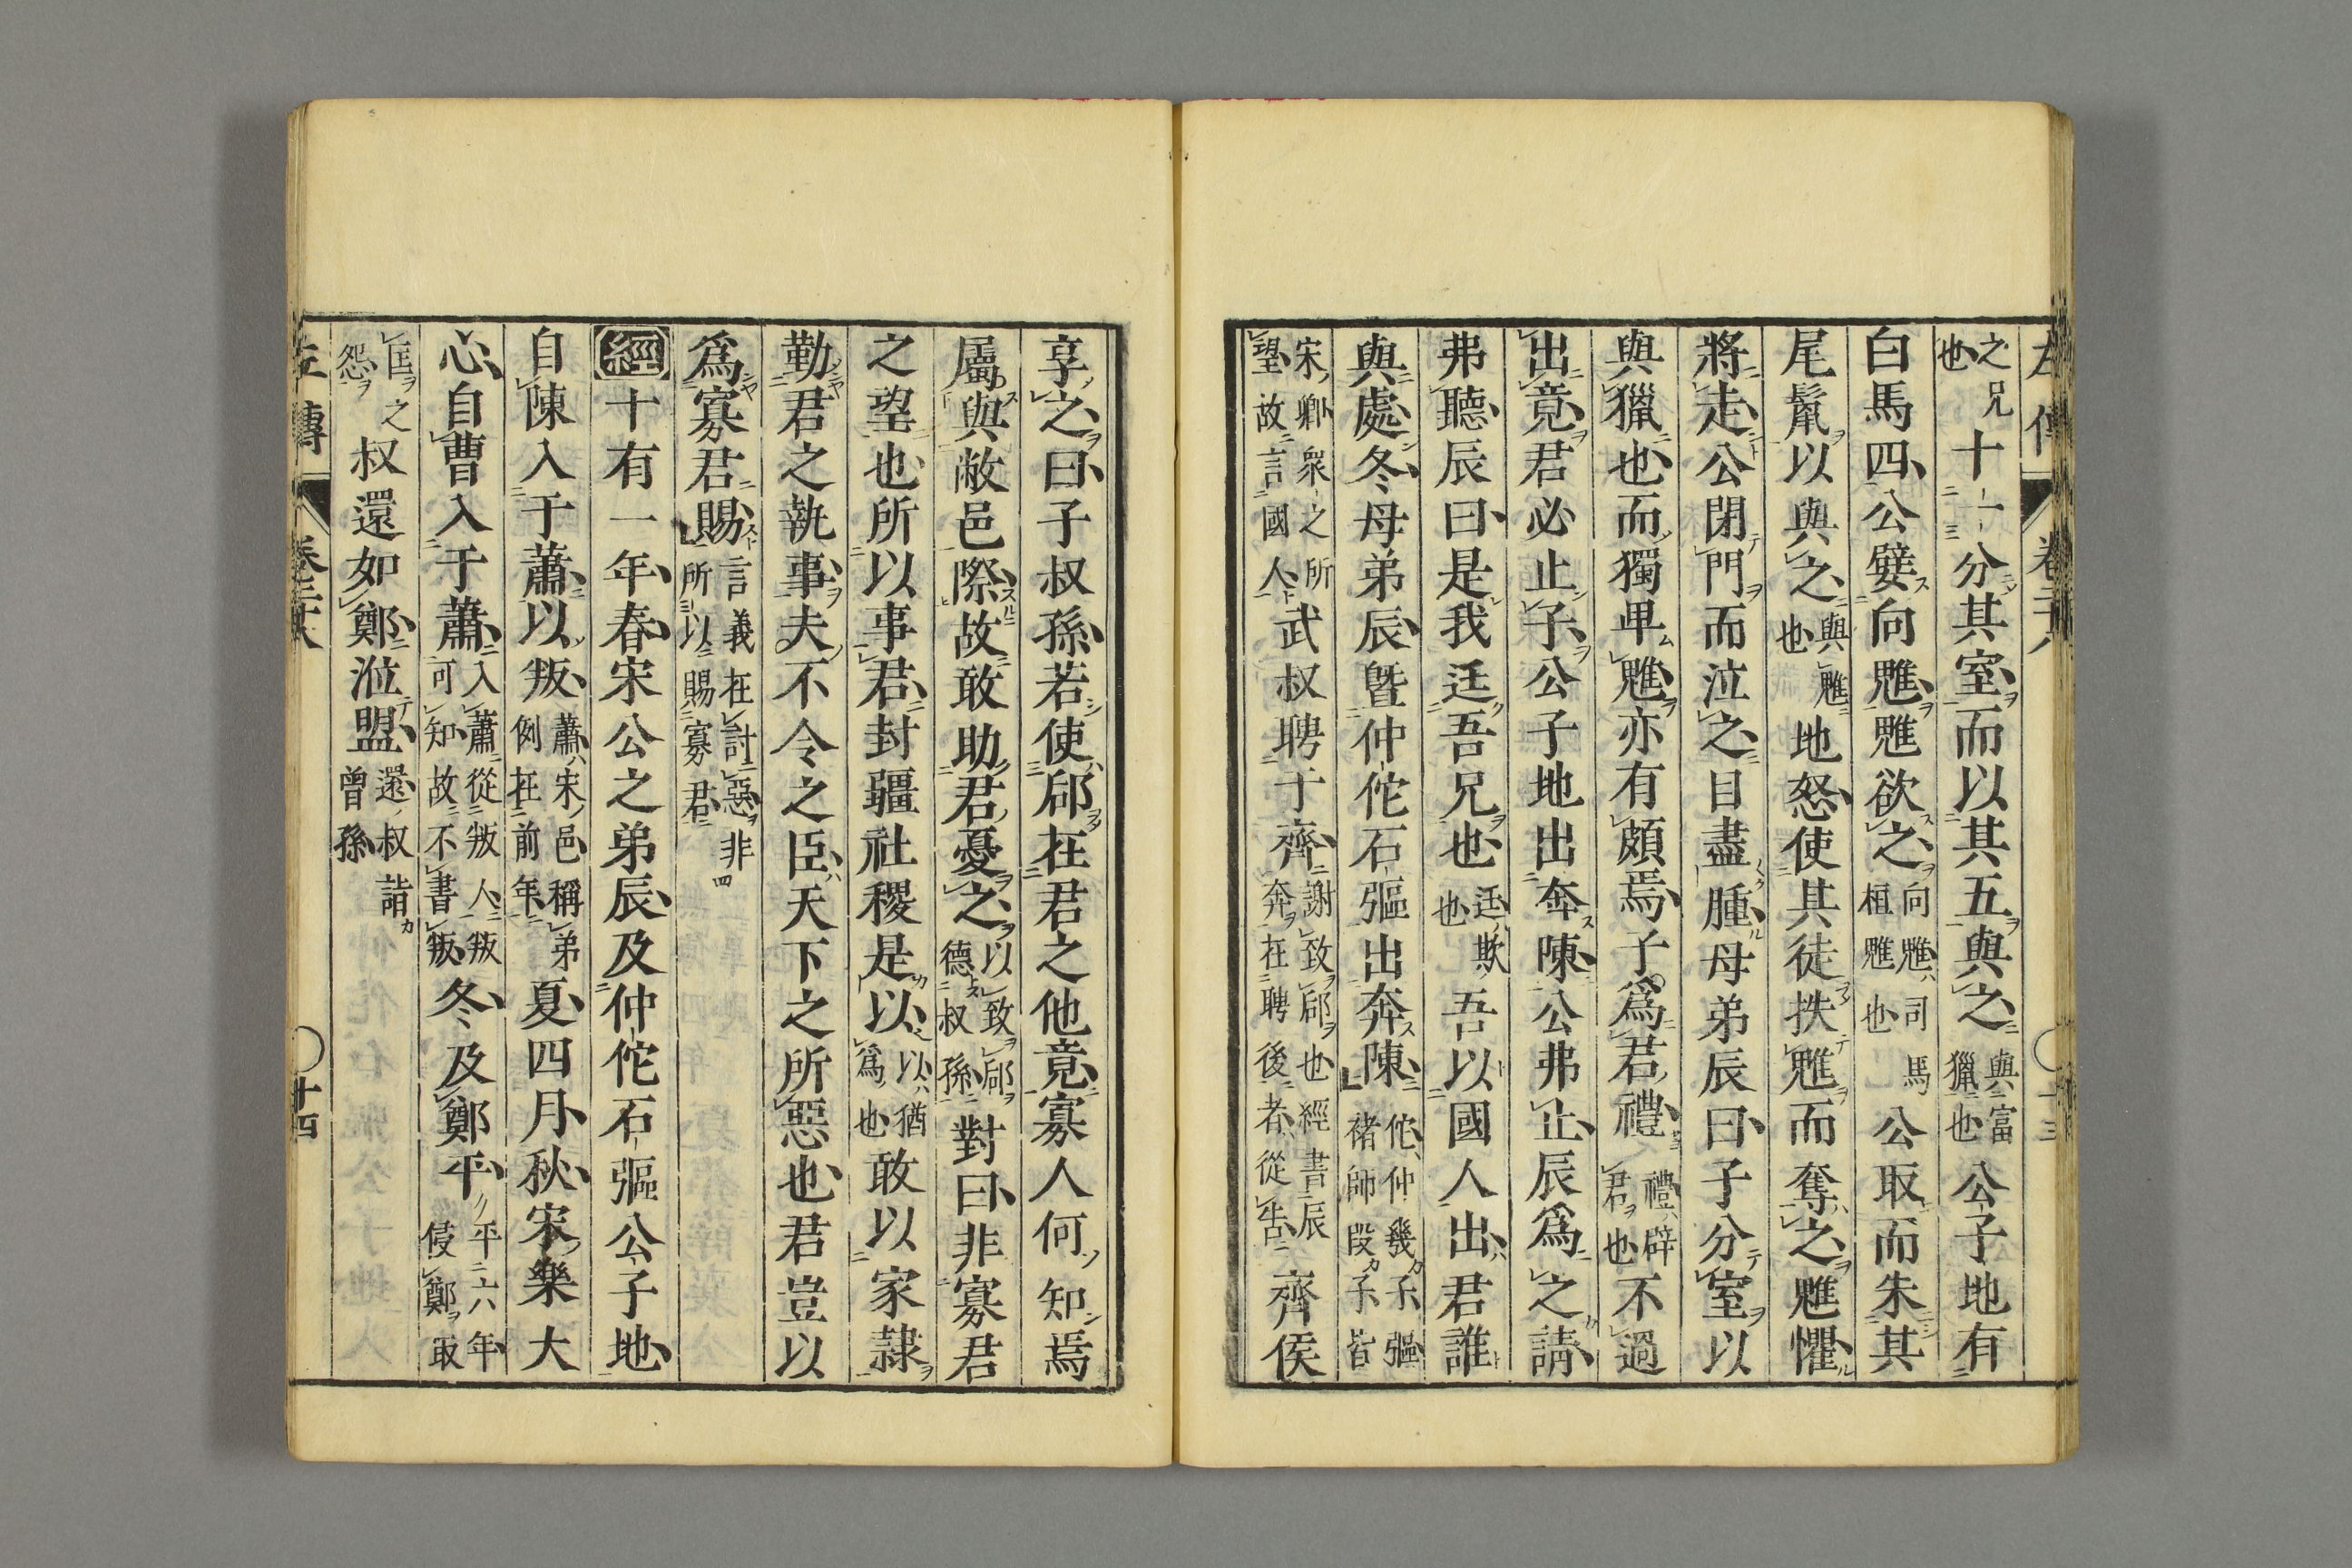 左傳 卷二十八 十三
之兄也十一分其室而以其五與之與富獵也公子地有
白馬四公嬖向魋魋欲之向魋司馬桓魋也公取而朱其
尾鬣以與之與魋也地怒使其徒抶魋而奪之魋懼
將走公閉門而泣之目盡腫母弟辰曰子分室以
與獵也而獨卑魋亦有頗焉子爲君禮禮辟君也不過
出竟君必止子公子地出奔陳公弗止辰爲之請
弗聽辰曰是我迋吾兄也迋欺也吾以國人出君誰
與處冬母弟辰曁仲佗石彄出奔陳佗仲幾子彄褚師段子皆
宋卿衆之所望故言國人武叔聘于齊謝致郈也經書辰奔在聘後者從告齊侯
享之曰子叔孫若使郈在君之他竟寡人何知焉
屬與敝邑際故敢助君憂之以致郈德叔孫對曰非寡君
之望也所以事君封疆社稷是以以猶爲也敢以家隷
勤君之執事夫不令之臣天下之所惡也君豈以
爲寡君賜言義在討惡非所以賜寡君
經十有一年春宋公之弟辰及仲佗石彄公子地
自陳入于蕭以叛蕭宋邑稱弟例在前年夏四月秋宋樂大
心自曹入于蕭入蕭從叛人叛可知故不書叛冬及鄭平平六年侵鄭取
匡之怨叔還如鄭涖盟還叔詣曾孫
左傳 卷二十八 十四